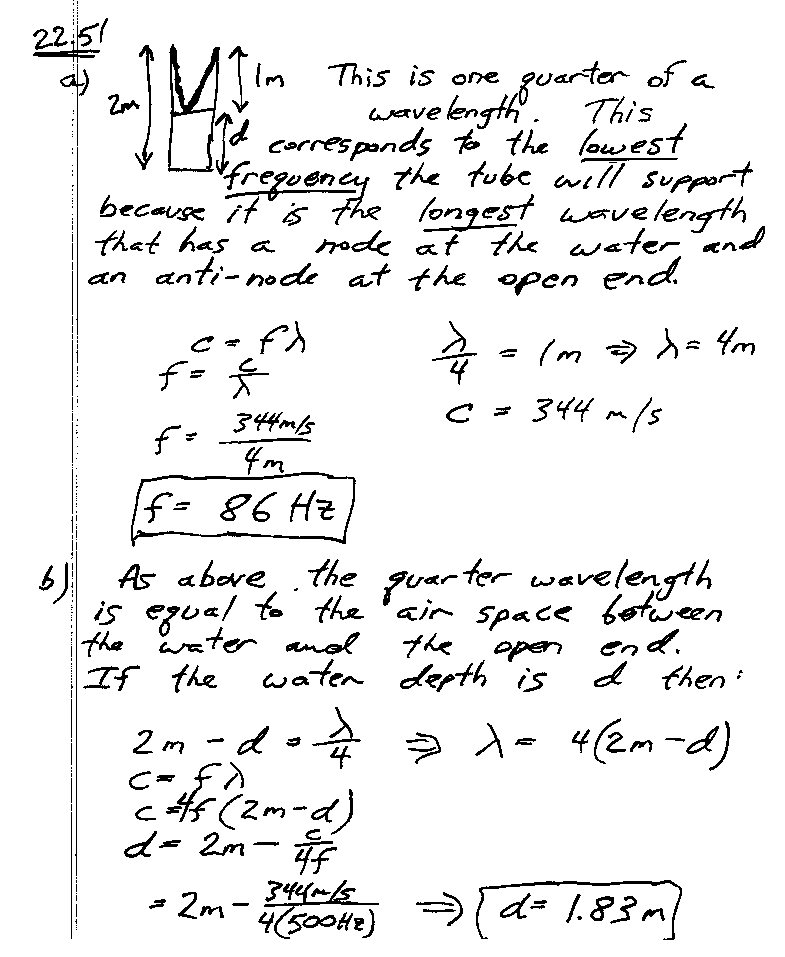 22.51
a)
2m
1m
d
This is one quarter of a
wavelength. This
corresponds to the lowest
frequency the tube will support
because it is the longest wavelength
that has a node at the water and
an anti-node at the open end.
c = fλ
λ/4 = 1m ⇒ λ = 4m
f = c/λ
c = 344 m/s
f = 344m/s / 4m
f = 86 Hz
b) As above the quarter wavelength
is equal to the air space between
the water and the open end.
If the water depth is d then:
2m - d = λ/4 ⇒ λ = 4(2m-d)
c = fλ
c = 4f(2m-d)
d = 2m - c/4f
= 2m - 344m/s / 4(500Hz) ⇒ d = 1.83m